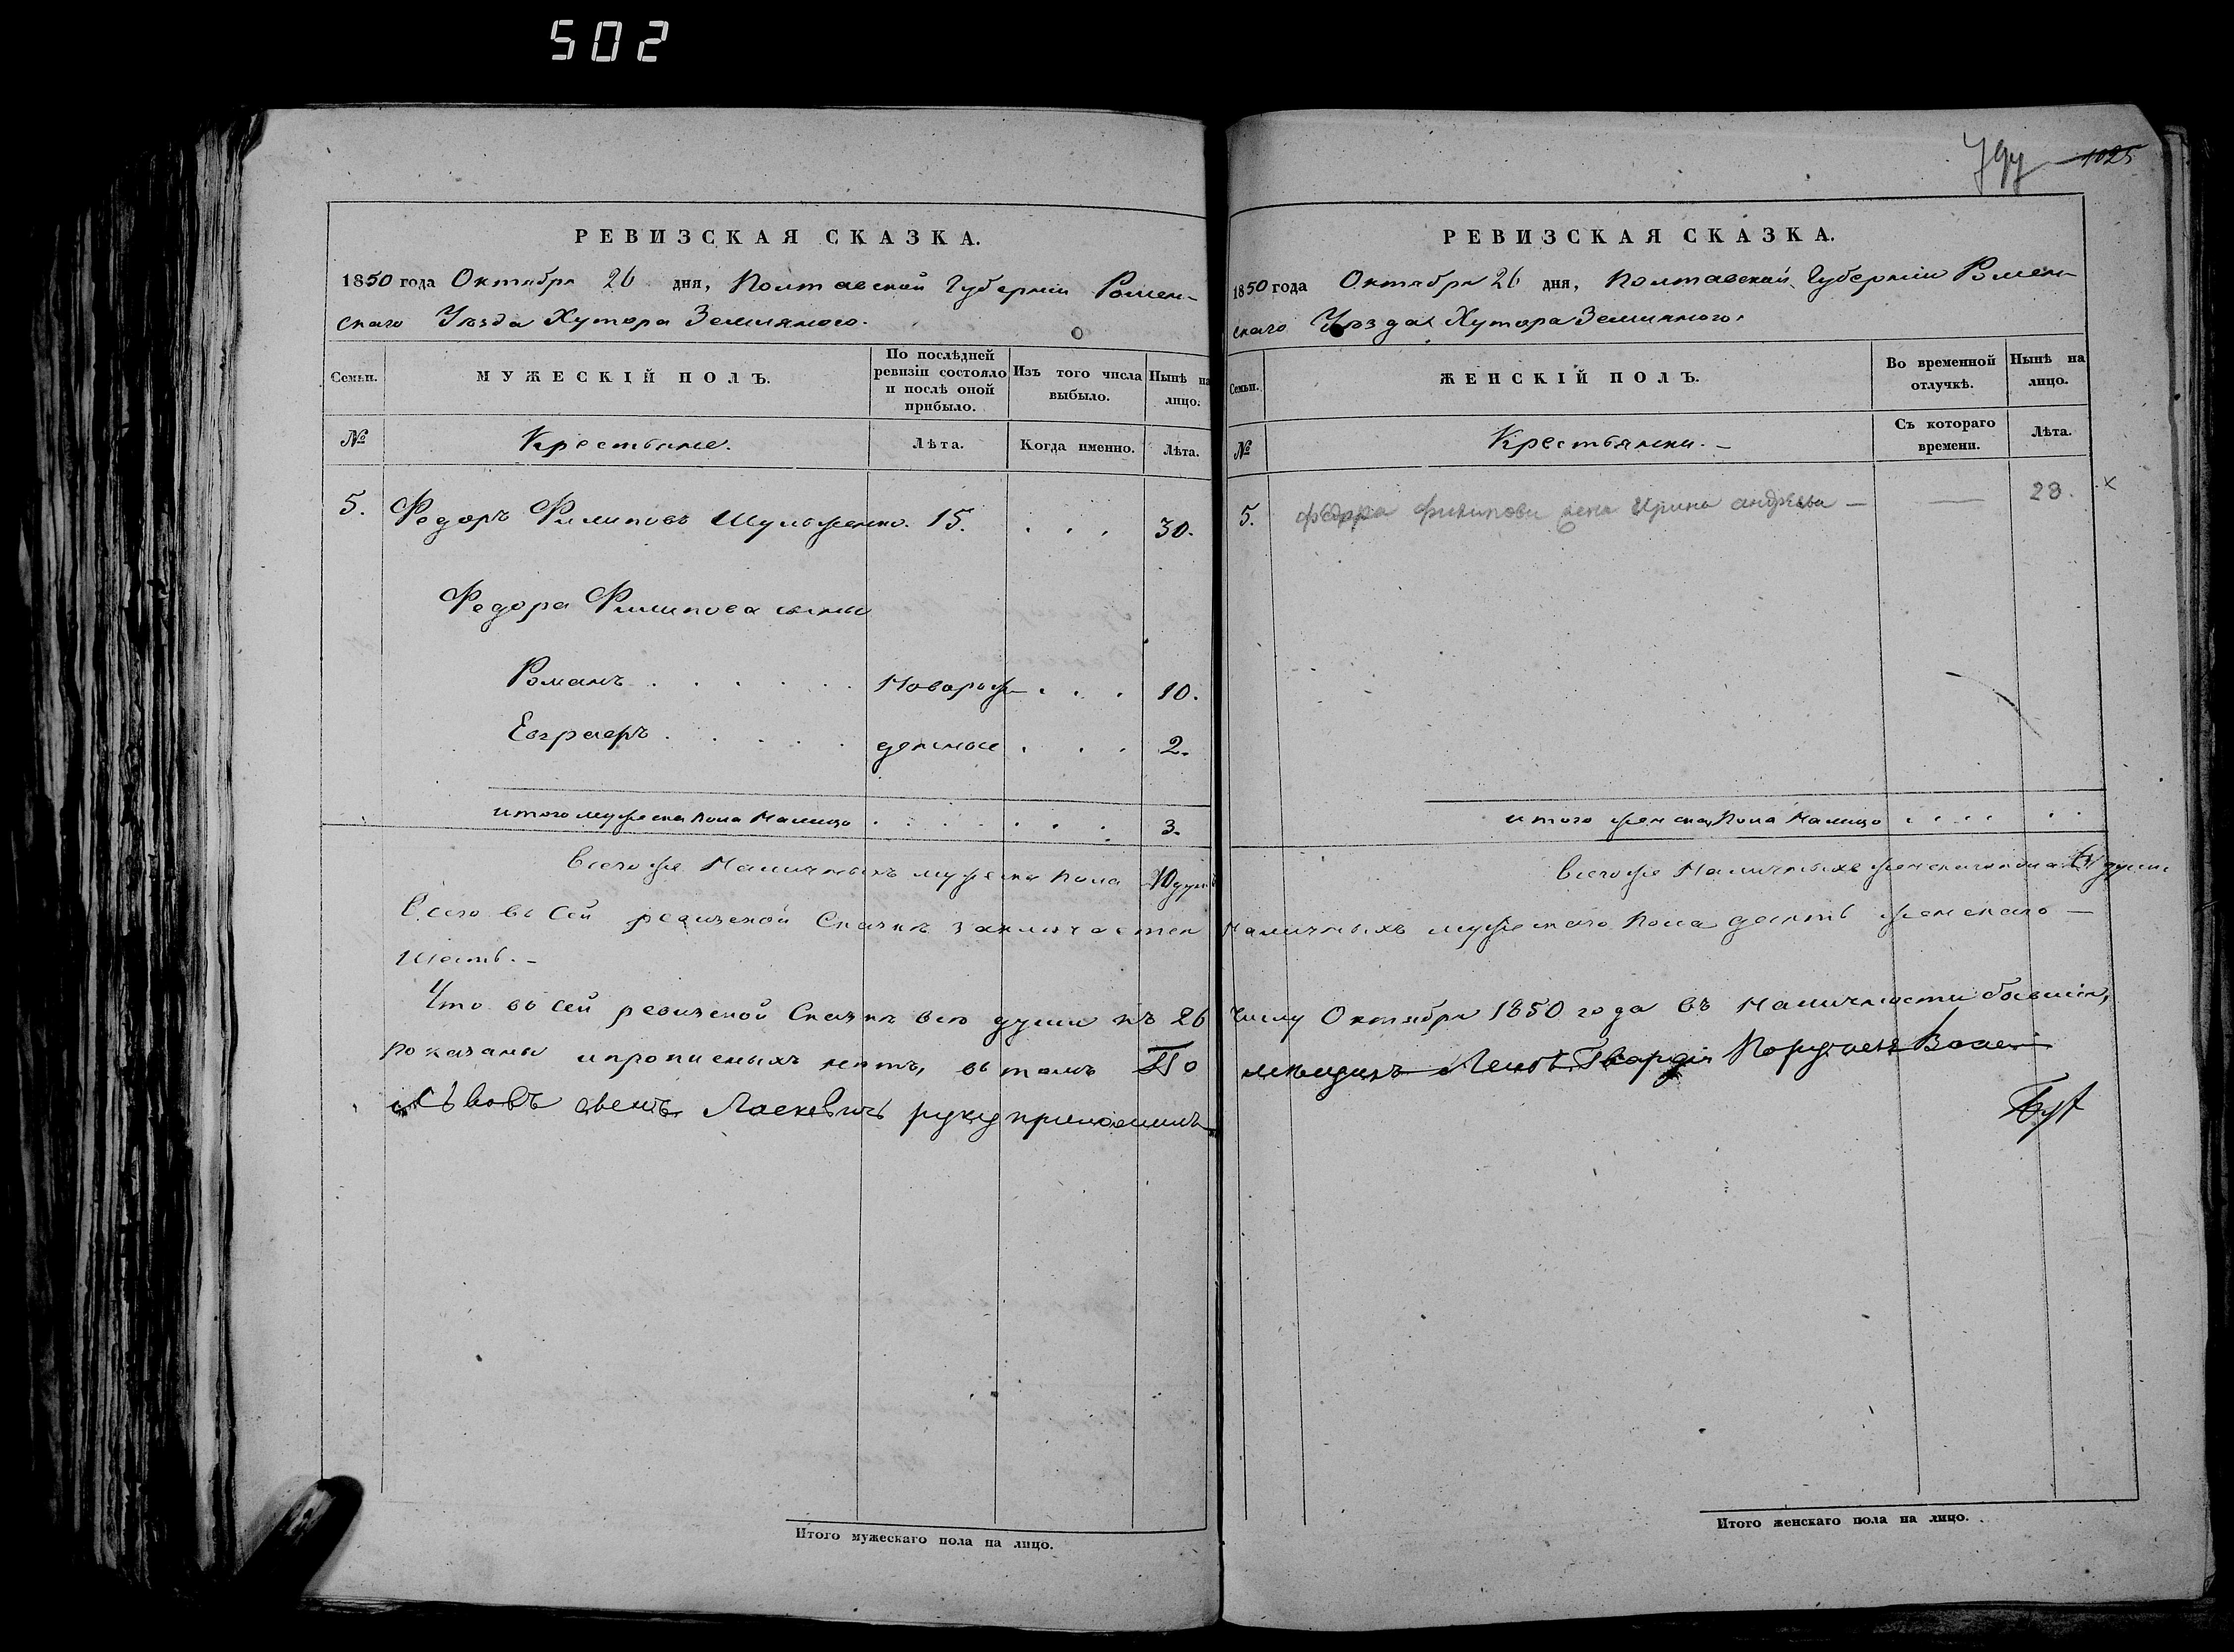 502
1025
РЕВИЗСКАЯ СКАЗКА.
1850 года Октября 26 дня, Полтавской Губерніи Ромен-
скаго Уѣзда Хутора Земляного.
Семьи.
МУЖЕСКІЙ ПОЛЪ.
По послѣдней ревизіи состояло и послѣ оной прибыло.
Изъ того числа выбыло.
Нынѣ на лицо.
№
Крестьяне.
Лѣта.
Когда именно.
Лѣта.
5. Федоръ Филиповъ Шульженко. 15. . . . 30.
Федора Филипова сыны
Романъ . . . . . . Новорож- . . . 10.
Евграфъ . . . . . денные . . . 2.
итого мужеска пола налицо . . . . . . . 3.
Всего же наличныхъ мужеска пола 10 душъ
РЕВИЗСКАЯ СКАЗКА.
1850 года Октября 26 дня, Полтавской Губерніи Ромен-
скаго Уѣзда Хутора Земляного.
Семьи.
ЖЕНСКІЙ ПОЛЪ.
Во временной отлучкѣ.
Нынѣ на лицо.
№
Крестьянки.
Съ котораго времени.
Лѣта.
5. Федора Филипова жена Ирина Андреева — — 28. х
итого женска пола налицо . . . . . .
Всего же наличныхъ женскаго пола 6 душъ
Всего въ сей ревизской сказкѣ заключается наличныхъ мужескаго пола десять женскаго —
шесть. —
Что въ сей ревизской сказкѣ всѣ души къ 26 числу Октября 1850 года въ наличности бывшія,
показаны и прописныхъ нетъ, въ томъ По мѣщикъ Лейбъ Гвардіи Порутчикъ
Ласкевичь руку приложилъ
Итого мужескаго пола на лицо.
Итого женскаго пола на лицо.